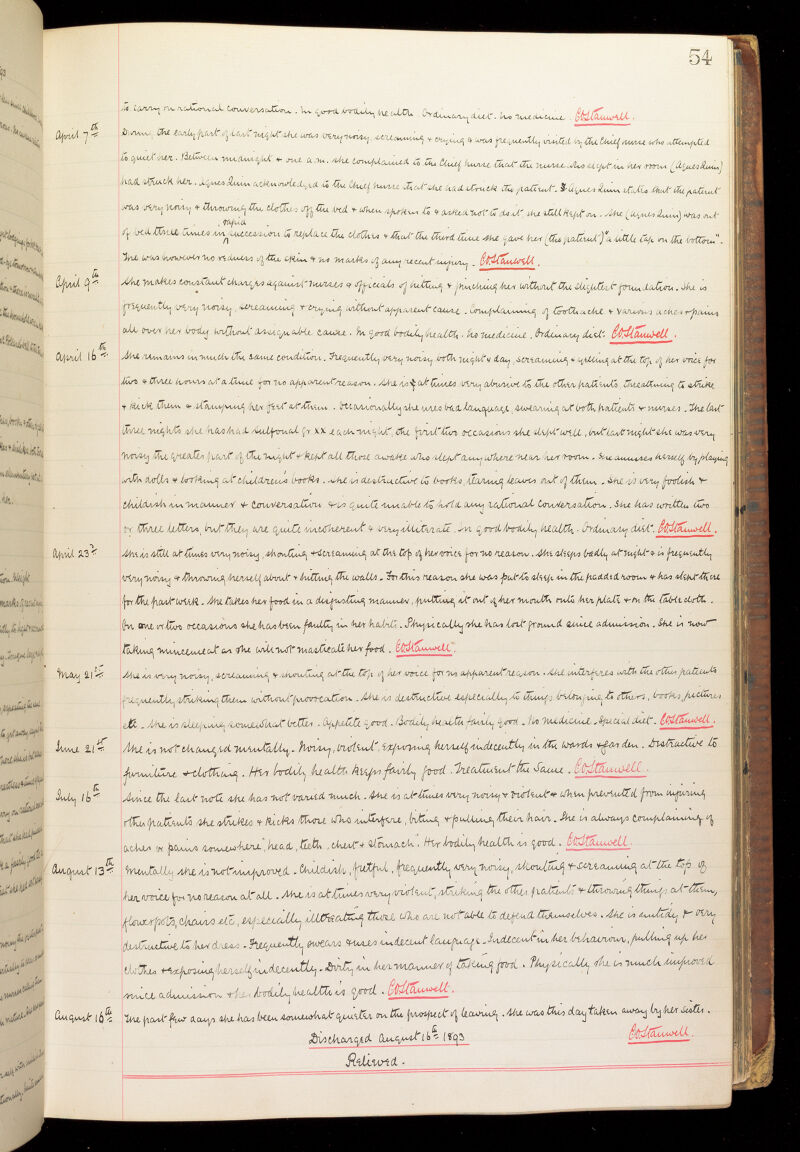 54
to carry on rational conversation. In good bodily health. Ordinary diet. No medicine. C.O. Stanwell.
April 7th During the early part of last night she was very noisy, screaming & crying & was frequently visited by the Chief nurse who attempted
to quiet her. Between midnight & one a.m. she complained to the Chief nurse that the nurse who slept in her room (Agnes Quin)
had struck her. Agnes Quin acknowledged to the Chief nurse that she had struck the patient. Agnes Quin states that the patient
was very noisy & throwing the clothes off the bed & when spoken to & asked not to do it she still kept on. She (Agnes Quin) was out
of bed three times in rapid succession to replace the clothes & that the third time she gave her (the patient) "a little tap on the bottom".
There was however no redness of the skin & no marks of any recent injury. C.O. Stanwell.
April 9th She makes constant charges against nurses & officials of hitting & pinching her without the slightest foundation. She is
frequently very noisy, screaming & crying without apparent cause. Complaining of toothache & various aches & pains
all over her body without assignable cause. In good bodily health. No medicine. Ordinary diet. C.O. Stanwell.
April 16th She remains in much the same condition. Frequently very noisy both night & day, screaming & yelling at the top of her voice for
two & three hours at a time for no apparent reason. She is at times very abusive to the other patients threatening to strike
& kick them & stamping her feet at them. Occasionally she uses bad language, swearing at both patients & nurses. The last
three nights she has had Sulfonal gr. xx each night, the first two occasions she slept well, but last night she was very
noisy the greater part of the night & kept all those awake who slept anywhere near her room. She amuses herself by playing
with dolls & looking at children's books. She is destructive to books, tearing leaves out of them. She is very foolish &
childish in manner & conversation & is quite unable to hold any rational conversation. She has written two
or three letters, but they are quite incoherent & very illiterate. In good bodily health. Ordinary diet. C.O. Stanwell.
April 23rd She is still at times very noisy, shouting & screaming at the top of her voice for no reason. She sleeps badly at night & is frequently
very noisy & throwing herself about & hitting the walls. For this reason she was put to sleep in the padded room & has slept there
for the past week. She takes her food in a disgusting manner, putting it out of her mouth onto her plate & on the table cloth.
On one or two occasions she has been faulty in her habits. Physically she has lost ground since admission. She is now
taking mincemeat as she will not masticate her food. C.O. Stanwell.
May 21st She is very noisy, screaming & shouting at the top of her voice for no apparent reason. She interferes with the other patients
frequently striking them without provocation. She is destructive especially to things belonging to others, books, pictures
etc. She is sleeping somewhat better. Appetite good. Bodily health fairly good. No medicine. Special diet. C.O. Stanwell.
June 21st She is not changed mentally. Noisy, violent, exposing herself indecently in the wards & garden. Destructive to
furniture & clothing. Her bodily health keeps fairly good. Treatment the Same. C.O. Stanwell.
July 16th Since the last note she has not varied much. She is at times very noisy & violent & when prevented from injuring
other patients she strikes & kicks those who interfere, biting & pulling their hair. She is always complaining of
aches or pains somewhere, head, teeth, chest & stomach. Her bodily health is good. C.O. Stanwell.
August 13th Mentally she is not improved. Childish, fretful, frequently very noisy, shouting & screaming at the top of
her voice for no reason at all. She is at times very violent, striking the other patients & throwing things at them,
flowerpots, chairs etc, especially illtreating those who are not able to defend themselves. She is untidy & very
destructive to her dress. Frequently swears & uses indecent language. Indecent in her behaviour, pulling up her
clothes & exposing herself indecently. Dirty in her manner of taking food. Physically she is much improved
since admission & her bodily health is good. C.O. Stanwell.
August 16th The past few days she has been somewhat quieter on the prospect of leaving. She was this day taken away by her sister.
Discharged August 16th 1893 C.O. Stanwell.
Relieved.